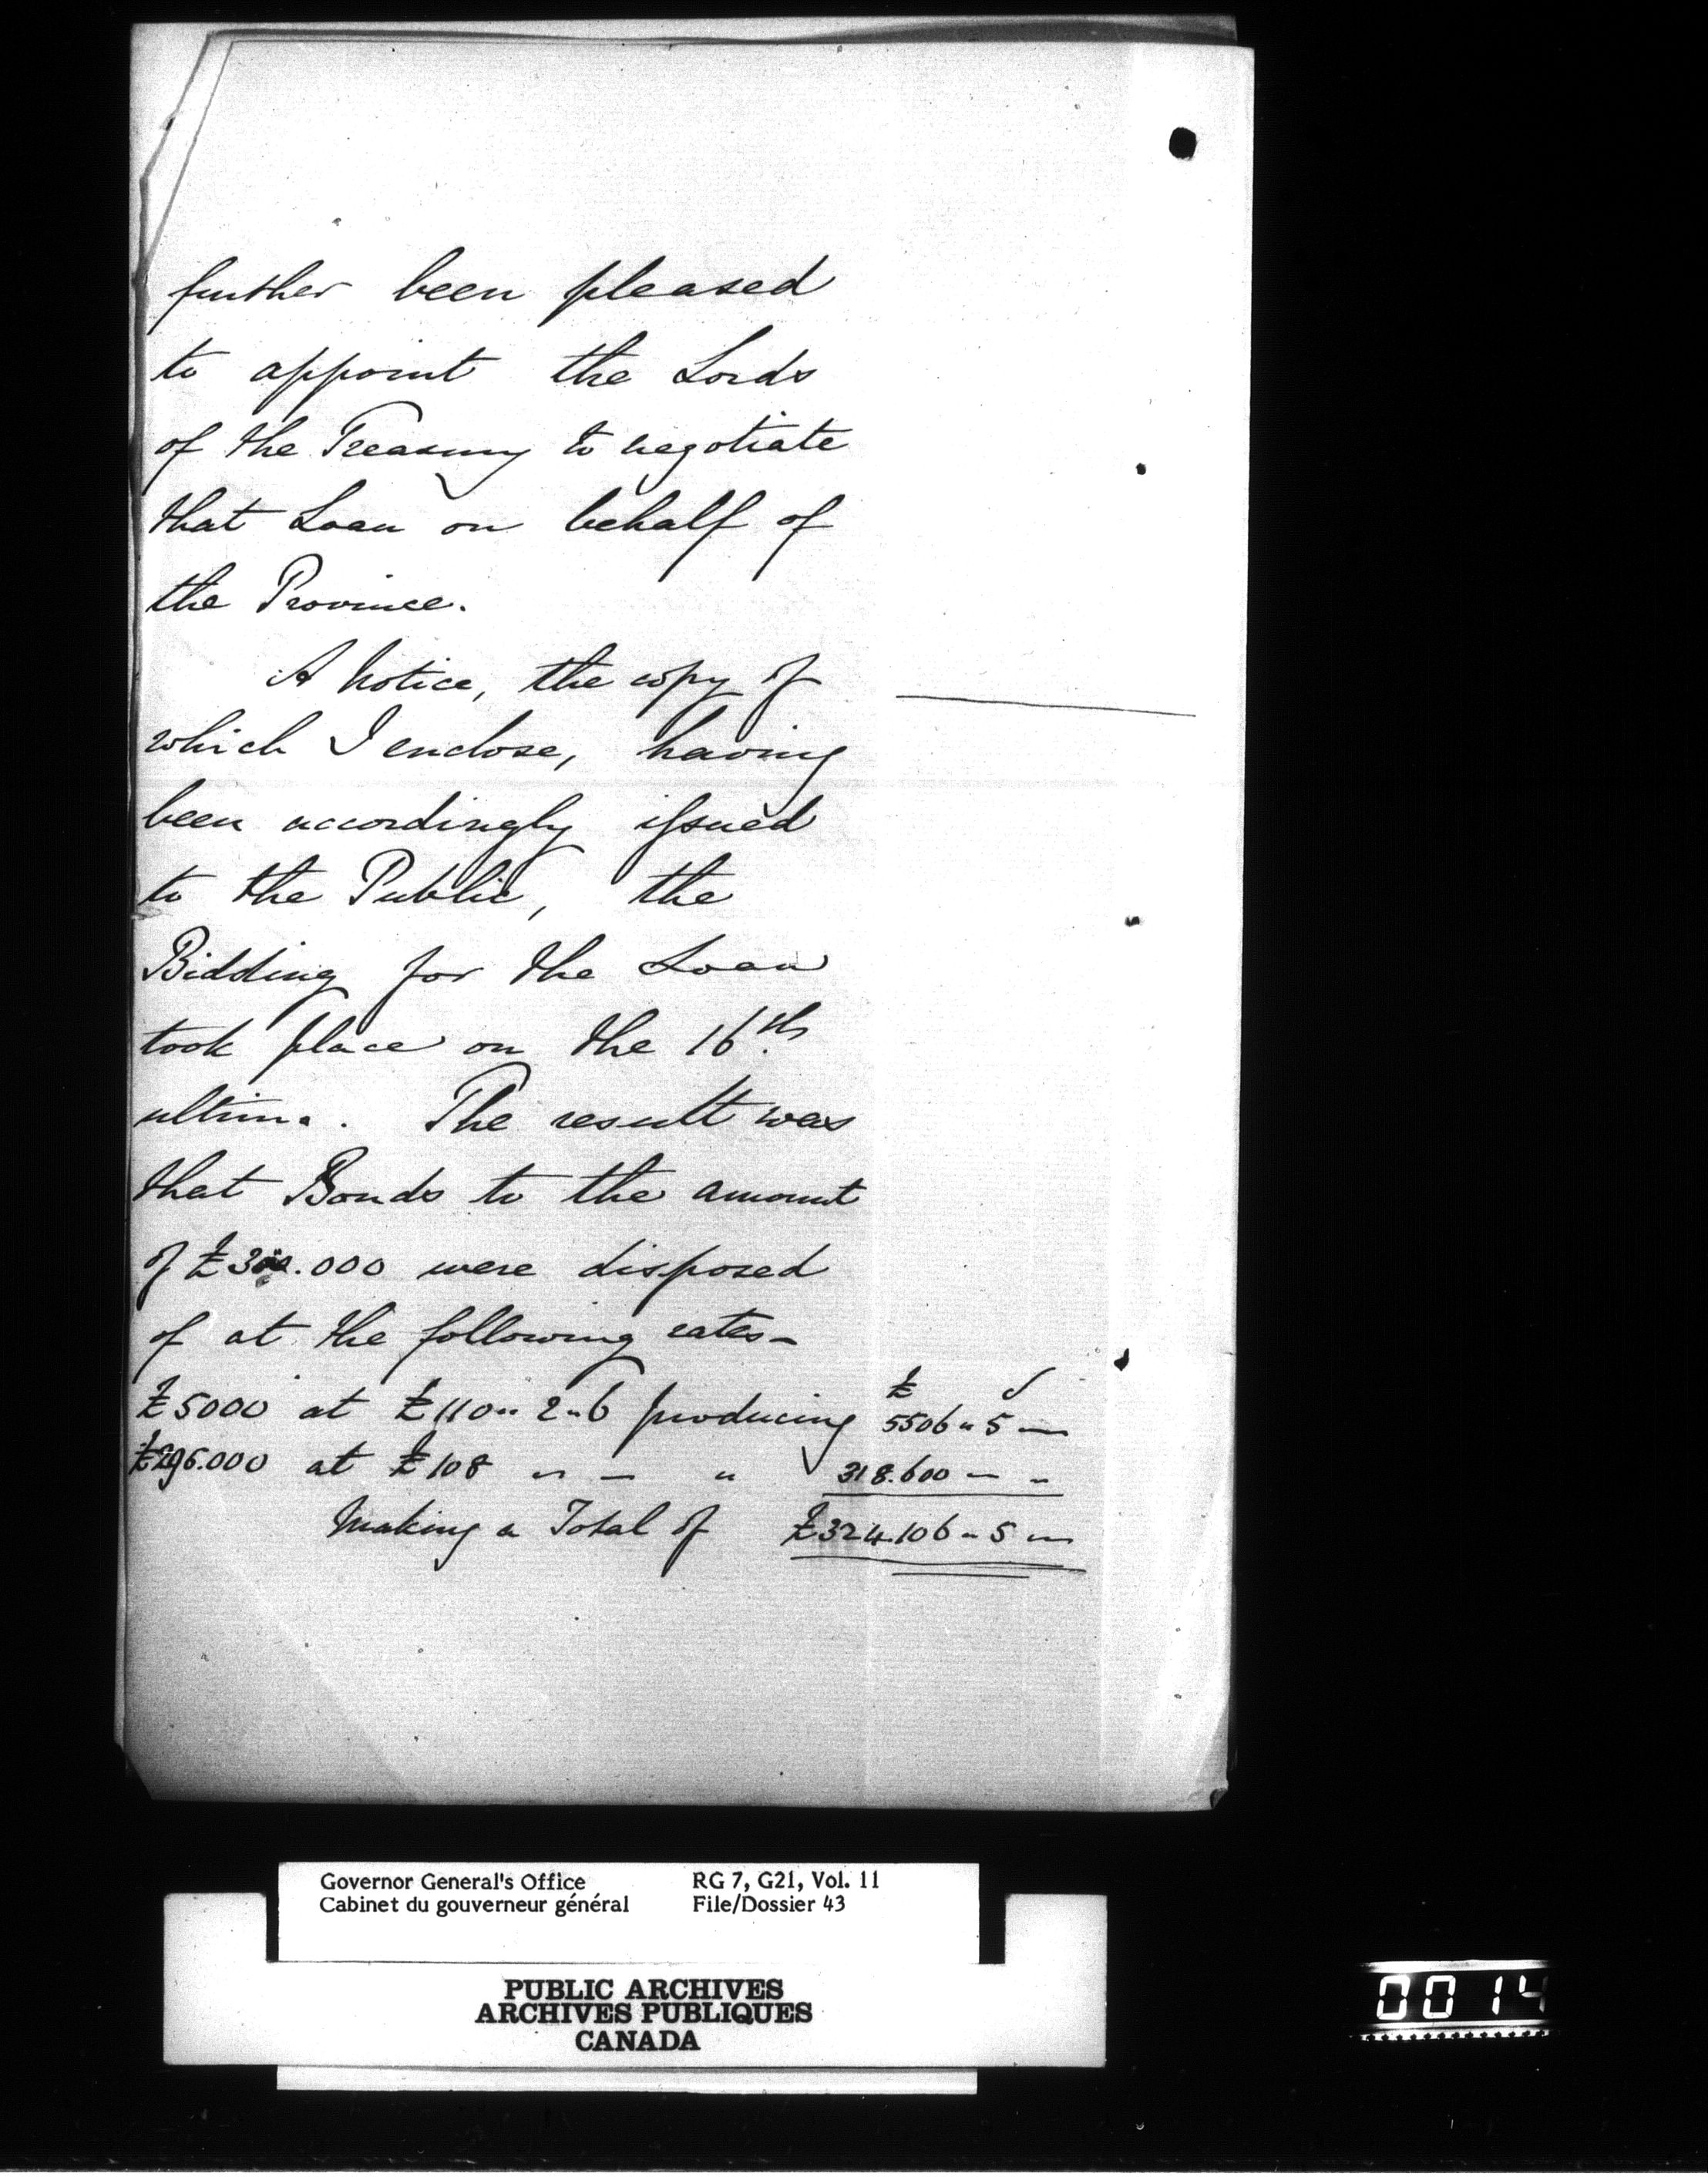 further been pleased
to appoint the Lords
of the Treasury to negotiate
that Loan on behalf of
the Province.
A Notice, the copy of
which I enclose, having
been accordingly issued
to the Public, the
Bidding for the Loan
took place on the 16th
ultimo. The result was
that Bonds to the amount
of £300.000 were disposed
of at the following rates—
£ s
£5000 at £110 " 2 " 6 producing 5506 " 5 —
£295.000 at £108 " — " 318.600 — "
Making a Total of £324.106 " 5 —
Governor General's Office RG 7, G21, Vol. 11
Cabinet du gouverneur général File/Dossier 43
PUBLIC ARCHIVES
ARCHIVES PUBLIQUES
CANADA
0014